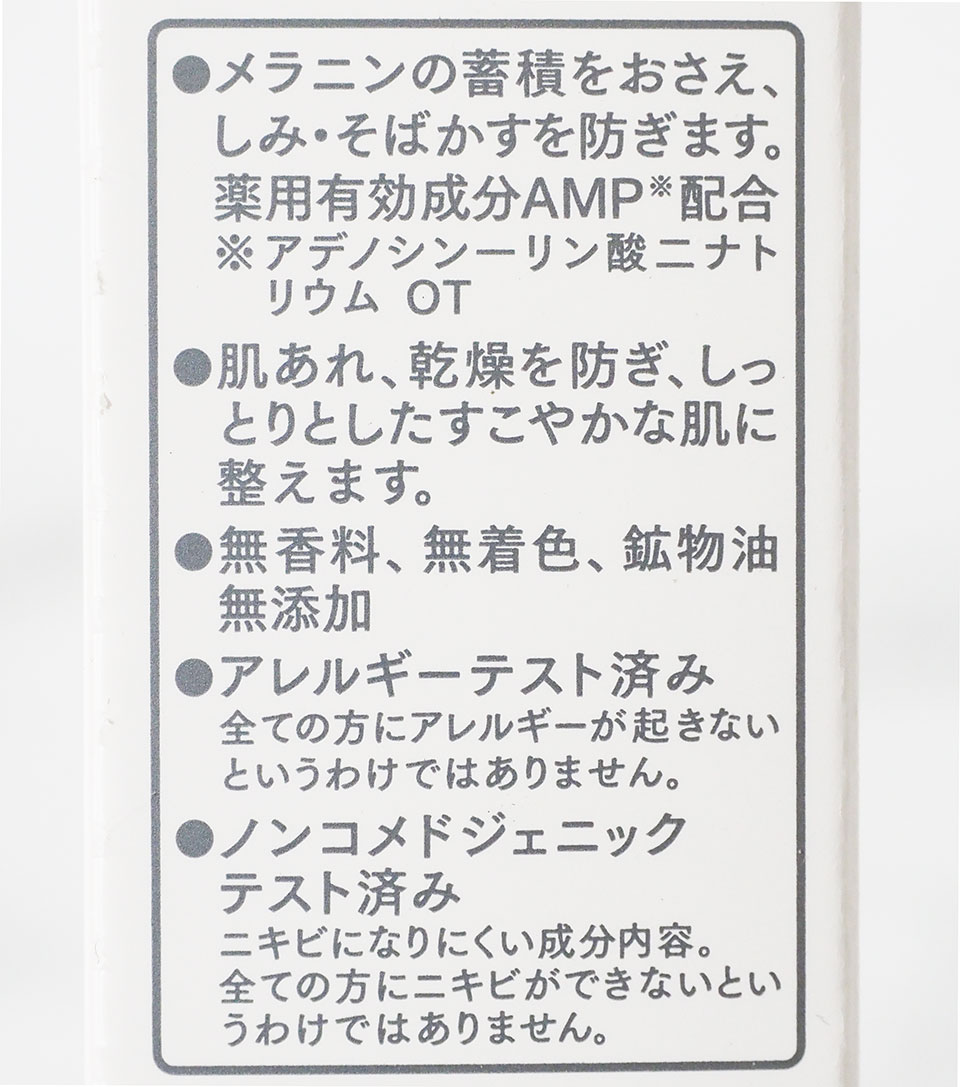 ●メラニンの蓄積をおさえ、
しみ・そばかすを防ぎます。
薬用有効成分AMP※配合
※アデノシン一リン酸二ナト
リウム OT
●肌あれ、乾燥を防ぎ、しっ
とりとしたすこやかな肌に
整えます。
●無香料、無着色、鉱物油
無添加
●アレルギーテスト済み
全ての方にアレルギーが起きない
というわけではありません。
●ノンコメドジェニック
テスト済み
ニキビになりにくい成分内容。
全ての方にニキビができないとい
うわけではありません。